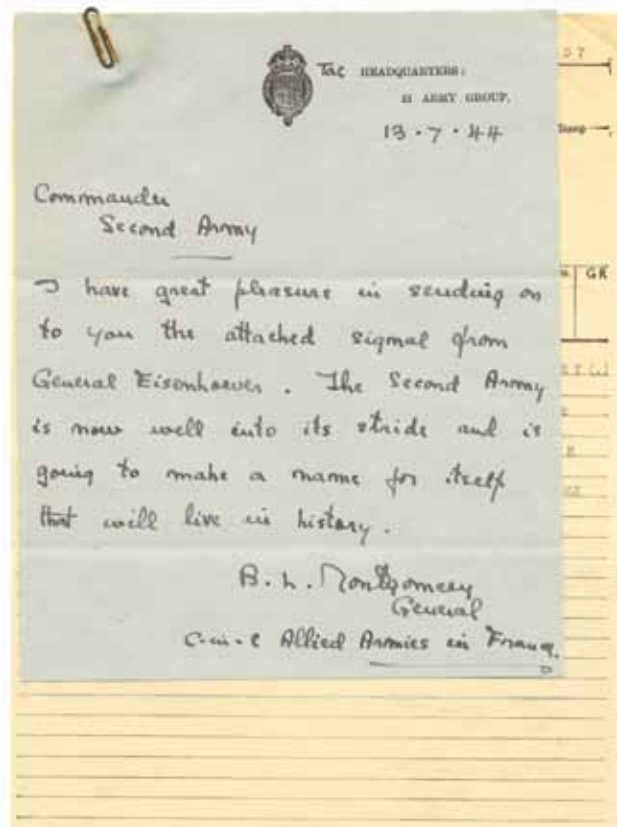 Tac HEADQUARTERS:
21 ARMY GROUP,
13.7.44
Commander
Second Army
I have great pleasure in sending on
to you the attached signal from
General Eisenhower. The Second Army
is now well into its stride and is
going to make a name for itself
that will live in history.
B. L. Montgomery
General
C-in-C Allied Armies in France.
GR